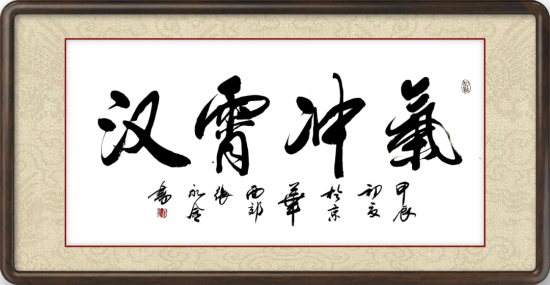 氣冲霄汉
甲辰初夏於京華西郊張永書